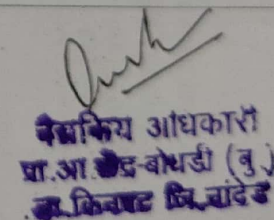 वैद्यकिय अधिकारी
प्रा.आ.केंद्र-बोधडी (बु.)
ता.किनवट जि.नांदेड